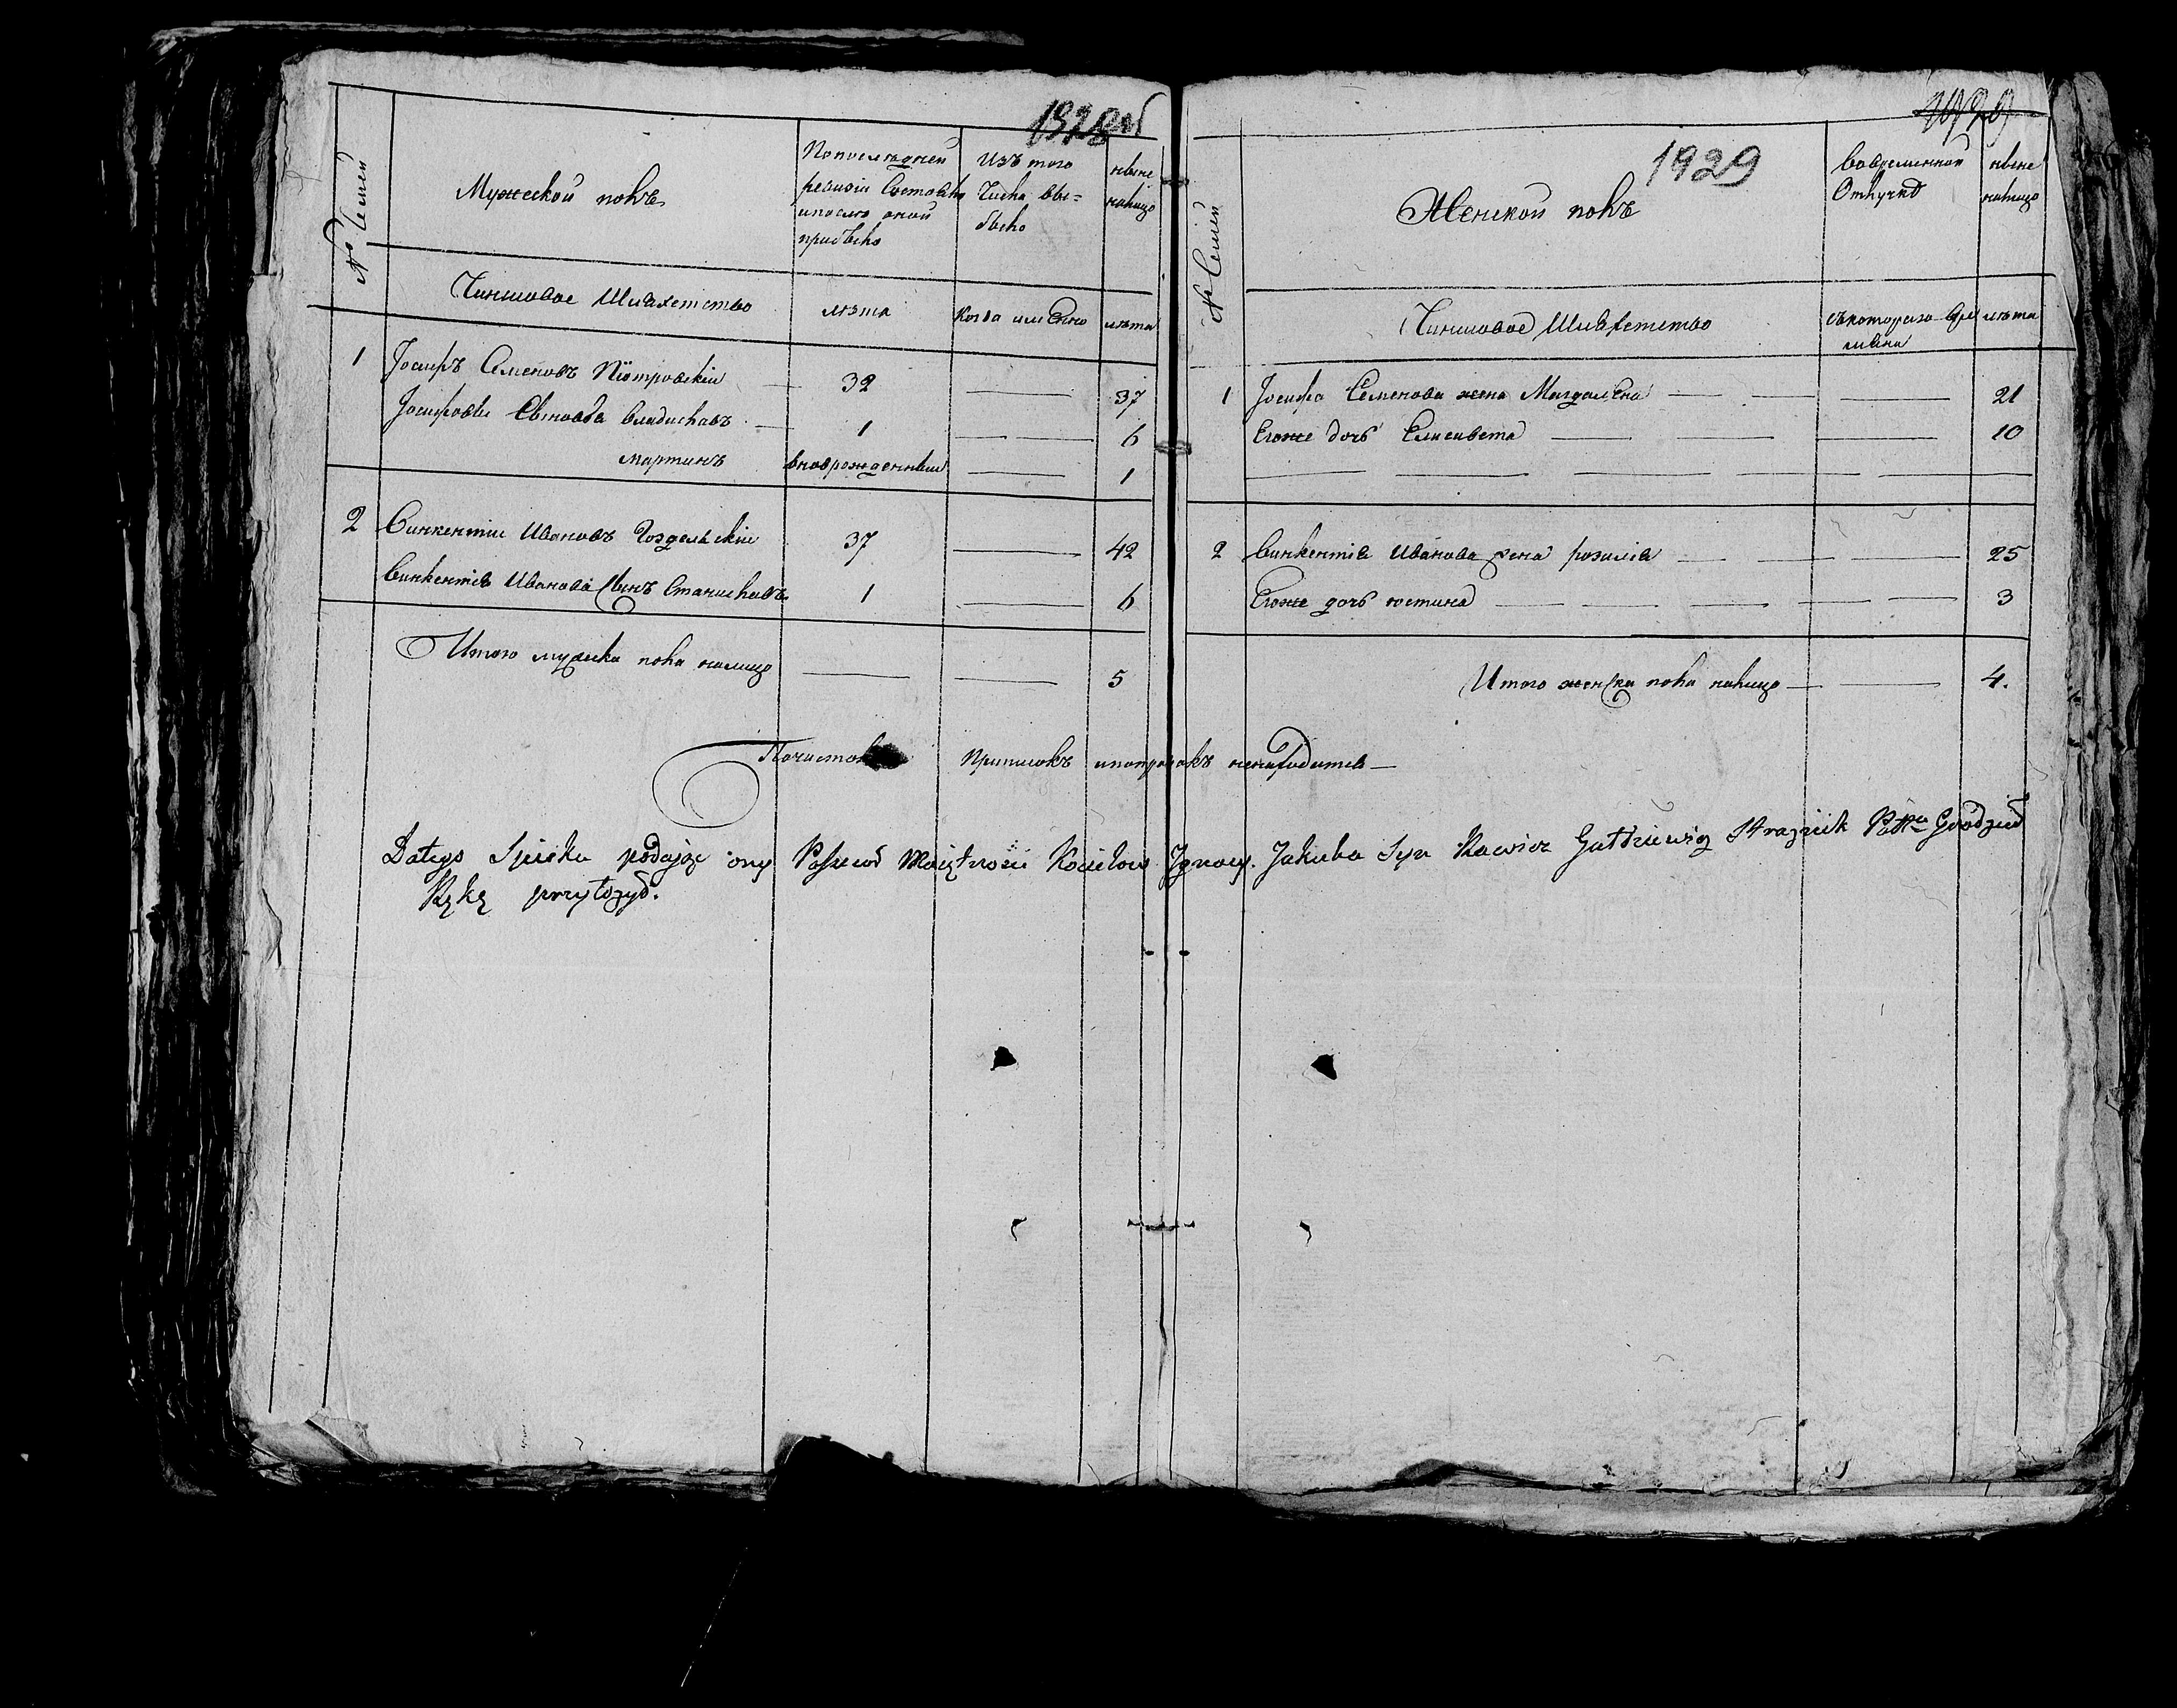 1928об
№ Семей
Мужеской полъ
По последней
ревизии Состояло
и после оной
прибыло
Изъ того
Числа вы=
было
ныне
налицо
Чиншовое Шляхетство
лѣта
Когда имянно
лѣта
1 Іосифъ Семеновъ Піотровскій — 32 — 37
Іосифовы Сыновья Владиславъ — 1 — 6
Мартинъ вноврожденный — 1
2 Винкентій Ивановъ 37 — 42
Винкентія Иванова Сынъ Станиславъ 1 — 6
Итого мужеска пола налицо — — 5
1929
№ Семей
Женской полъ
Вовременной
Отлучке
ныне
налицо
Чиншовое Шляхетство
съ котораго вре
мяни
лѣта
1 Іосифа Семенова жена Магдалена — — — 21
Егоже дочь Елисавета — — — 10
2 Винкентія Иванова жена розалія — — — 25
Егоже дочь юстина — — — — — 3
Итого женска пола налицо — — 4.
приписокъ ипоправокъ ненаходится —
Datego Spisku podając ony Ignacy Jakuba Syn
Rękę przyłożył.